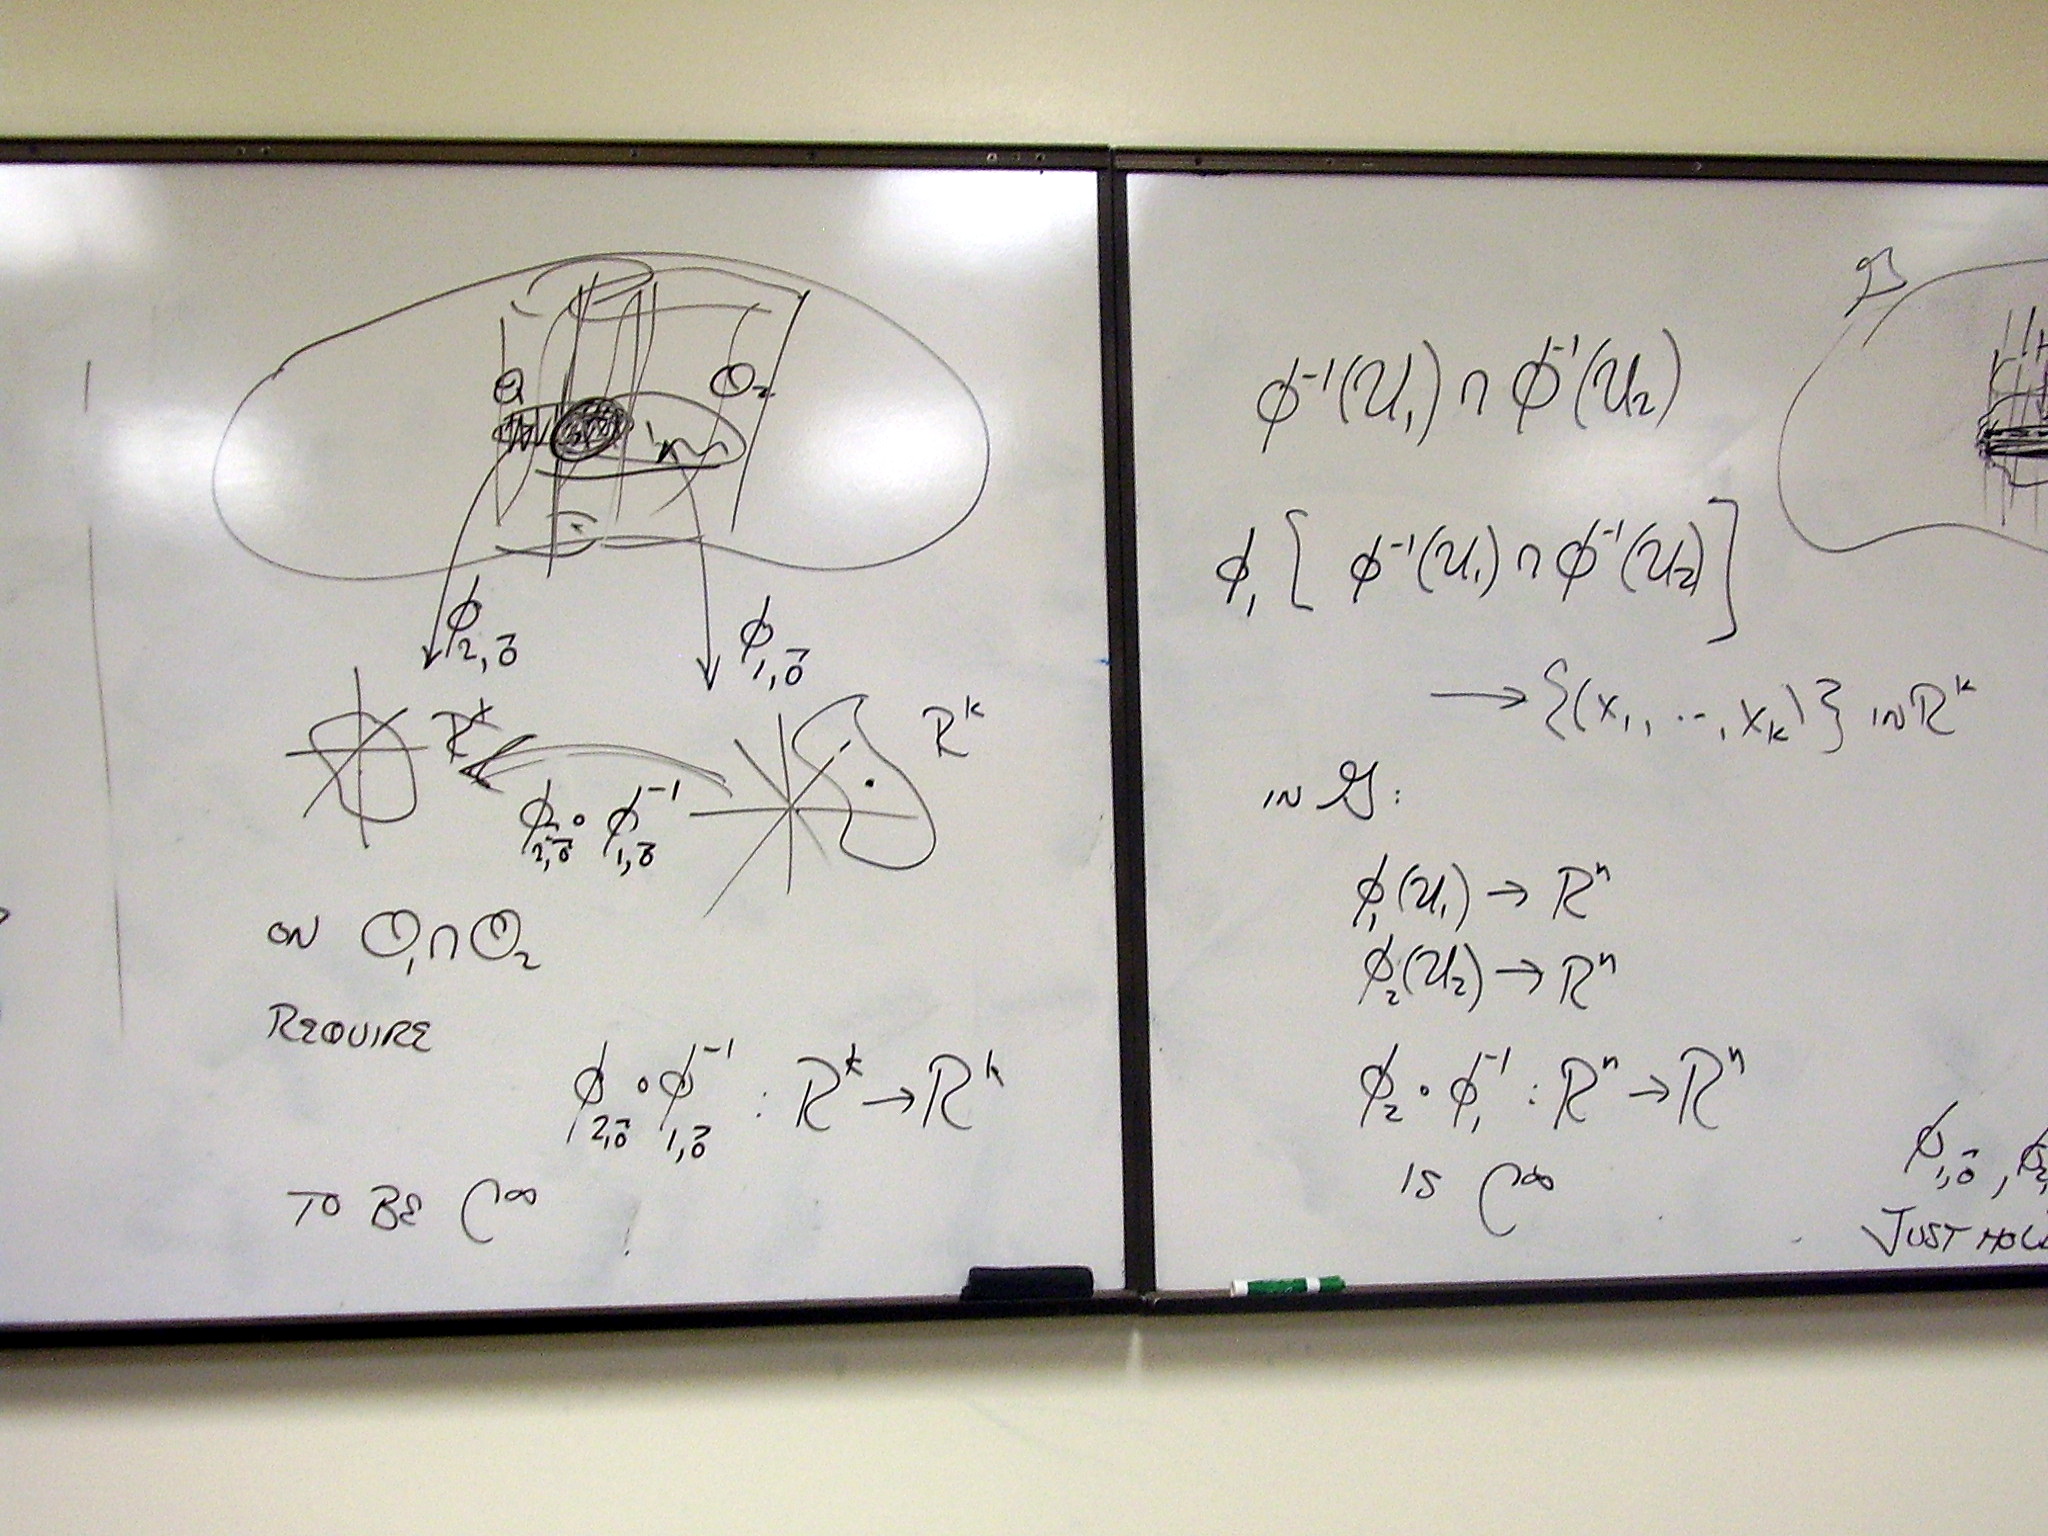 O₂
ϕ₂,₀⃗
ϕ₁,₀⃗
ℝᵏ
ℝᵏ
ϕ₂,₀⃗ ∘ ϕ₁,₀⃗⁻¹
ON O₁ ∩ O₂
REQUIRE
ϕ₂,₀⃗ ∘ ϕ₁,₀⃗⁻¹ : ℝᵏ → ℝᵏ
TO BE C^∞
ϕ⁻¹(U₁) ∩ ϕ⁻¹(U₂)
ϕ₁[ϕ⁻¹(U₁) ∩ ϕ⁻¹(U₂)]
→ {(x₁, ..., xₖ)} IN ℝᵏ
IN 𝒢:
ϕ₁(U₁) → ℝⁿ
ϕ₂(U₂) → ℝⁿ
ϕ₂ ∘ ϕ₁⁻¹ : ℝⁿ → ℝⁿ
IS C^∞
ϕ₁,₀⃗ , ϕ₂,
JUST